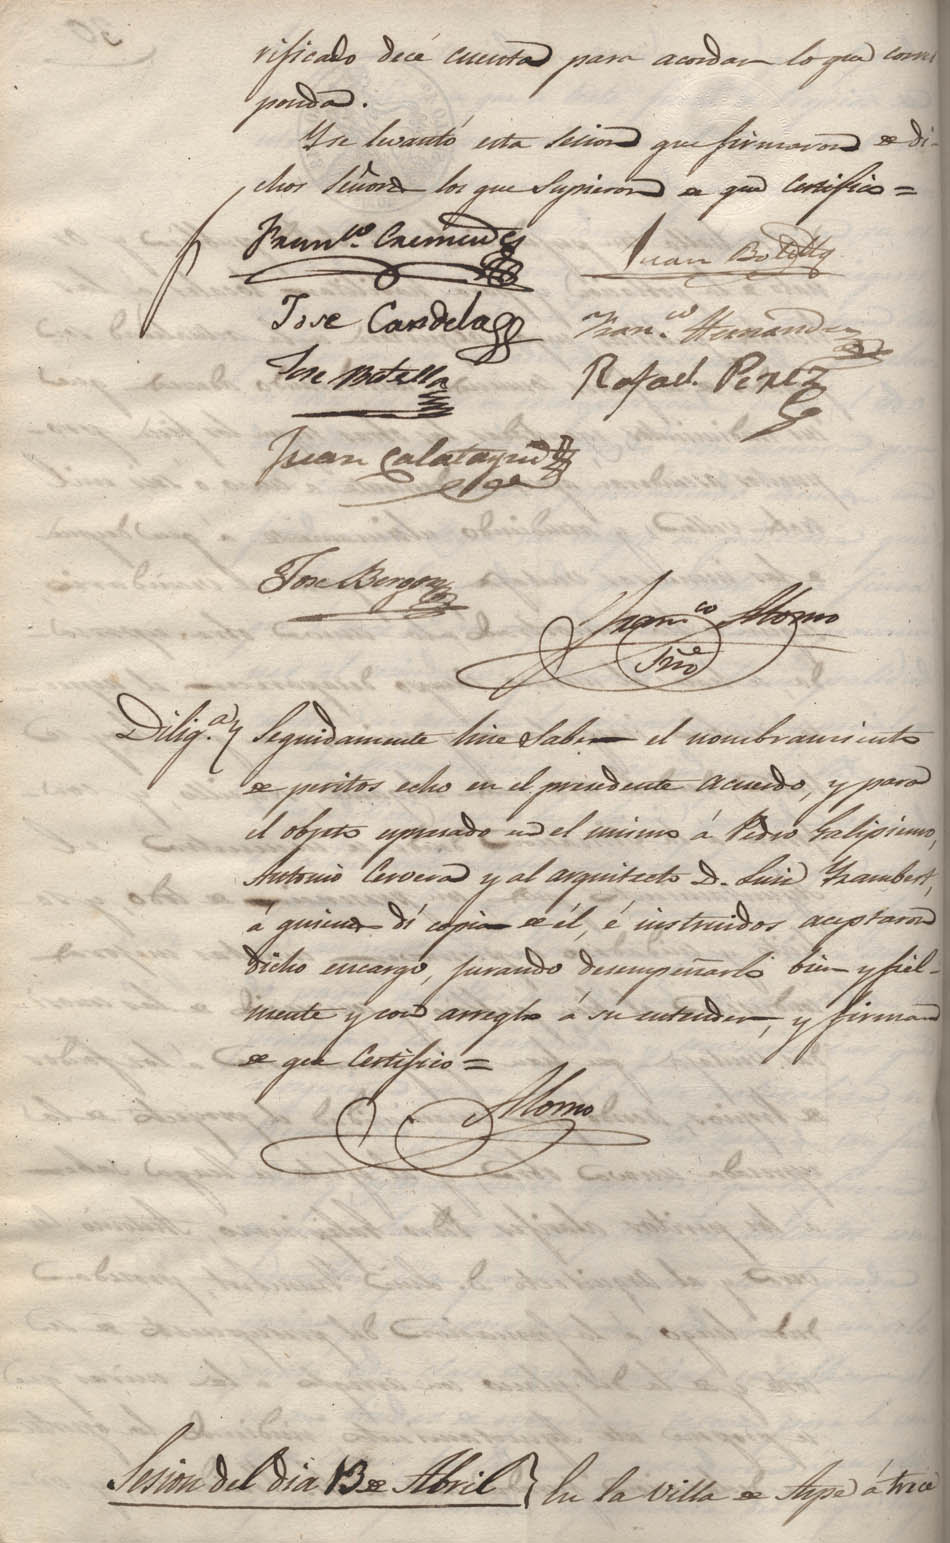 rificado decé cuenta para acordar lo que corres
ponda.
Y se levantó esta sesion que firmaron de di-
chos Señores los que supieron de que Certifico =
Fran.co Cremades Juan Botella
Jose Candela Fran.co Hernandez
Jose Botella Rafael Perez
Juan Calatayud
Jose
Fran.co Alomo
Srio
Dilig.a Seguidamente hice saber el nombramiento
de peritos echo en el precedente acuerdo, y para
el objeto espresado en el mismo á Pedro Galipienso,
Antonio Cervera y al arquitecto D. Luis
á quienes dí copia de él, é instruidos aceptaron
dicho encargo, jurando desempeñarlo bien y fiel-
mente y con arreglo á su entender, y firman
de que Certifico =
Alomo
Sesion del dia 13 de Abril En la villa de Aspe á trece